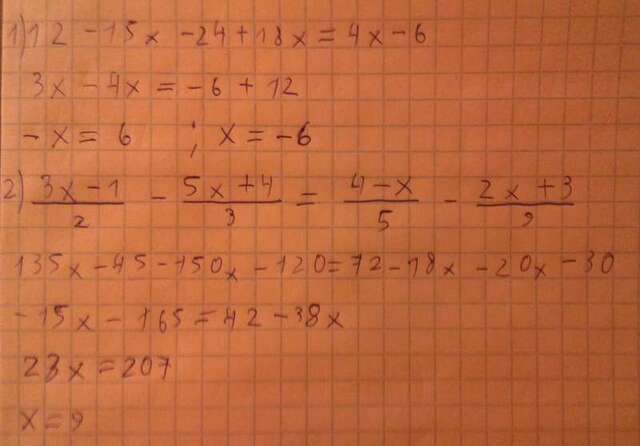 1) 12 - 15x - 24 + 18x = 4x - 6
3x - 4x = -6 + 12
-x = 6 ; x = -6
2) (3x - 1)/2 - (5x + 4)/3 = (4 - x)/5 - (2x + 3)/9
135x - 45 - 150x - 120 = 72 - 18x - 20x - 30
-15x - 165 = 42 - 38x
23x = 207
x = 9